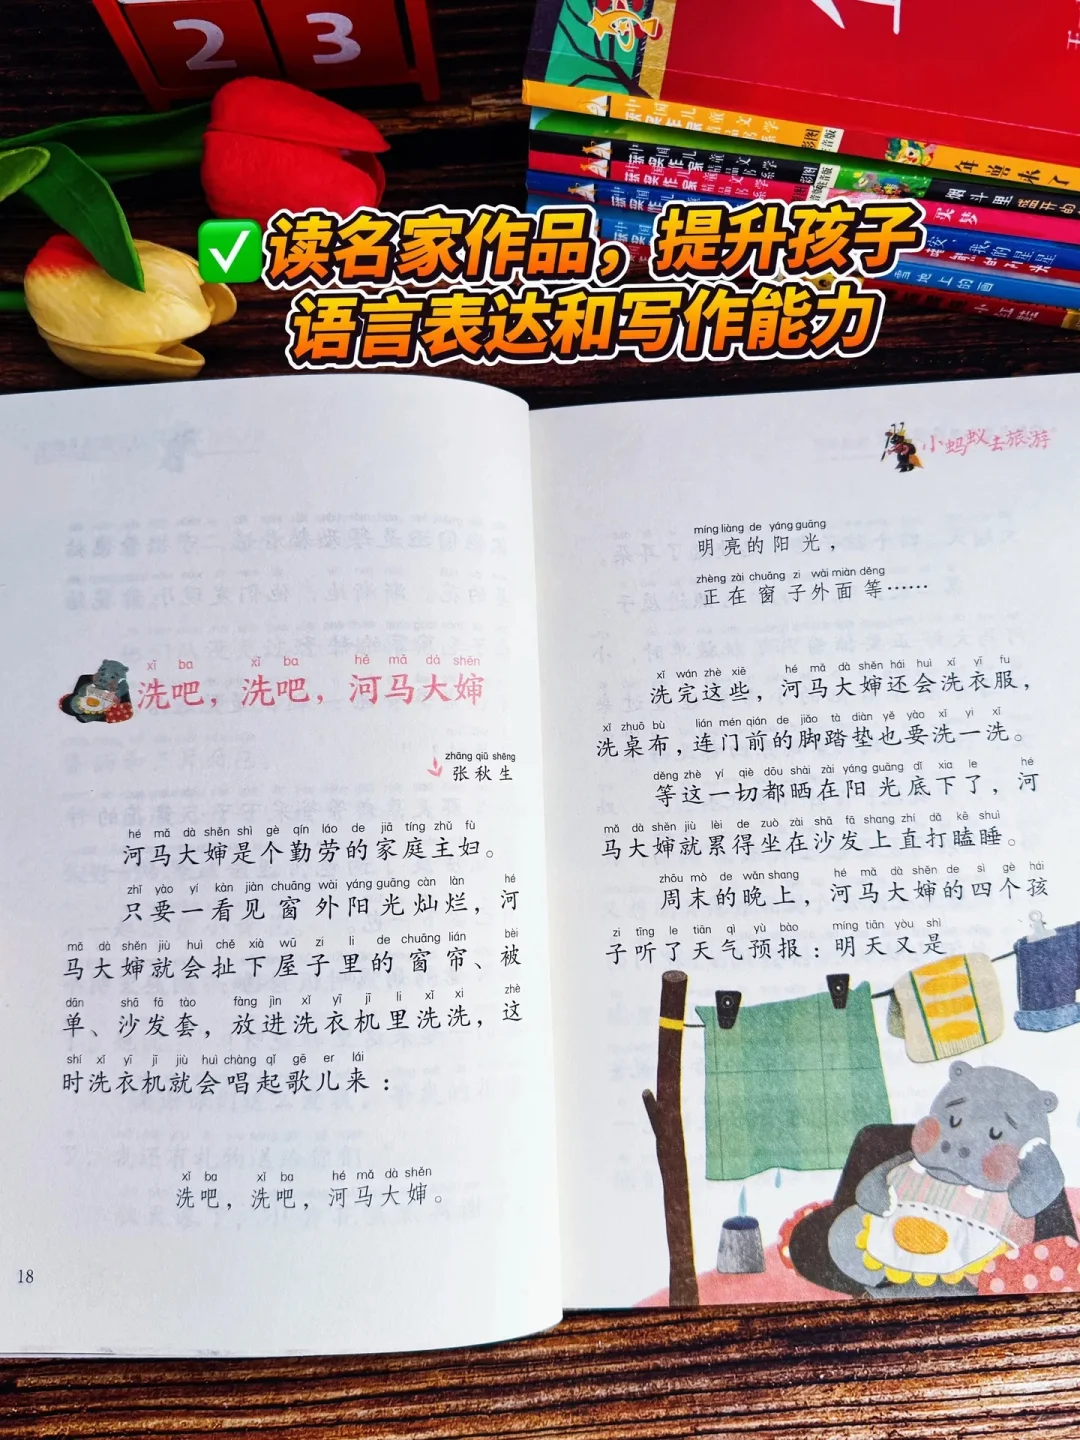 23
读名家作品，提升孩子
语言表达和写作能力
小蚂蚁去旅游
xǐ ba xǐ ba hé mǎ dà shěn
洗吧，洗吧，河马大婶
zhāng qiū shēng
张秋生
hé mǎ dà shěn shì gè qín láo de jiā tíng zhǔ fù
河马大婶是个勤劳的家庭主妇。
zhǐ yào yí kàn jiàn chuāng wài yáng guāng càn làn hé
只要一看见窗外阳光灿烂，河
mǎ dà shěn jiù huì chě xià wū zi li de chuāng lián bèi
马大婶就会扯下屋子里的窗帘、被
dān shā fā tào fàng jìn xǐ yī jī li xǐ xi zhè
单、沙发套，放进洗衣机里洗洗，这
shí xǐ yī jī jiù huì chàng qǐ gē er lái
时洗衣机就会唱起歌儿来：
xǐ ba xǐ ba hé mǎ dà shěn
洗吧，洗吧，河马大婶。
18
míng liàng de yáng guāng
明亮的阳光，
zhèng zài chuāng zi wài miàn děng
正在窗子外面等……
xǐ wán zhè xiē hé mǎ dà shěn hái huì xǐ yī fu
洗完这些，河马大婶还会洗衣服，
xǐ zhuō bù lián mén qián de jiǎo tà diàn yě yào xǐ yi xǐ
洗桌布，连门前的脚踏垫也要洗一洗。
děng zhè yí qiè dōu shài zài yáng guāng dǐ xia le hé
等这一切都晒在阳光底下了，河
mǎ dà shěn jiù lèi de zuò zài shā fā shang zhí dǎ kē shuì
马大婶就累得坐在沙发上直打瞌睡。
zhōu mò de wǎn shang hé mǎ dà shěn de sì gè hái
周末的晚上，河马大婶的四个孩
zi tīng le tiān qì yù bào míng tiān yòu shì
子听了天气预报：明天又是